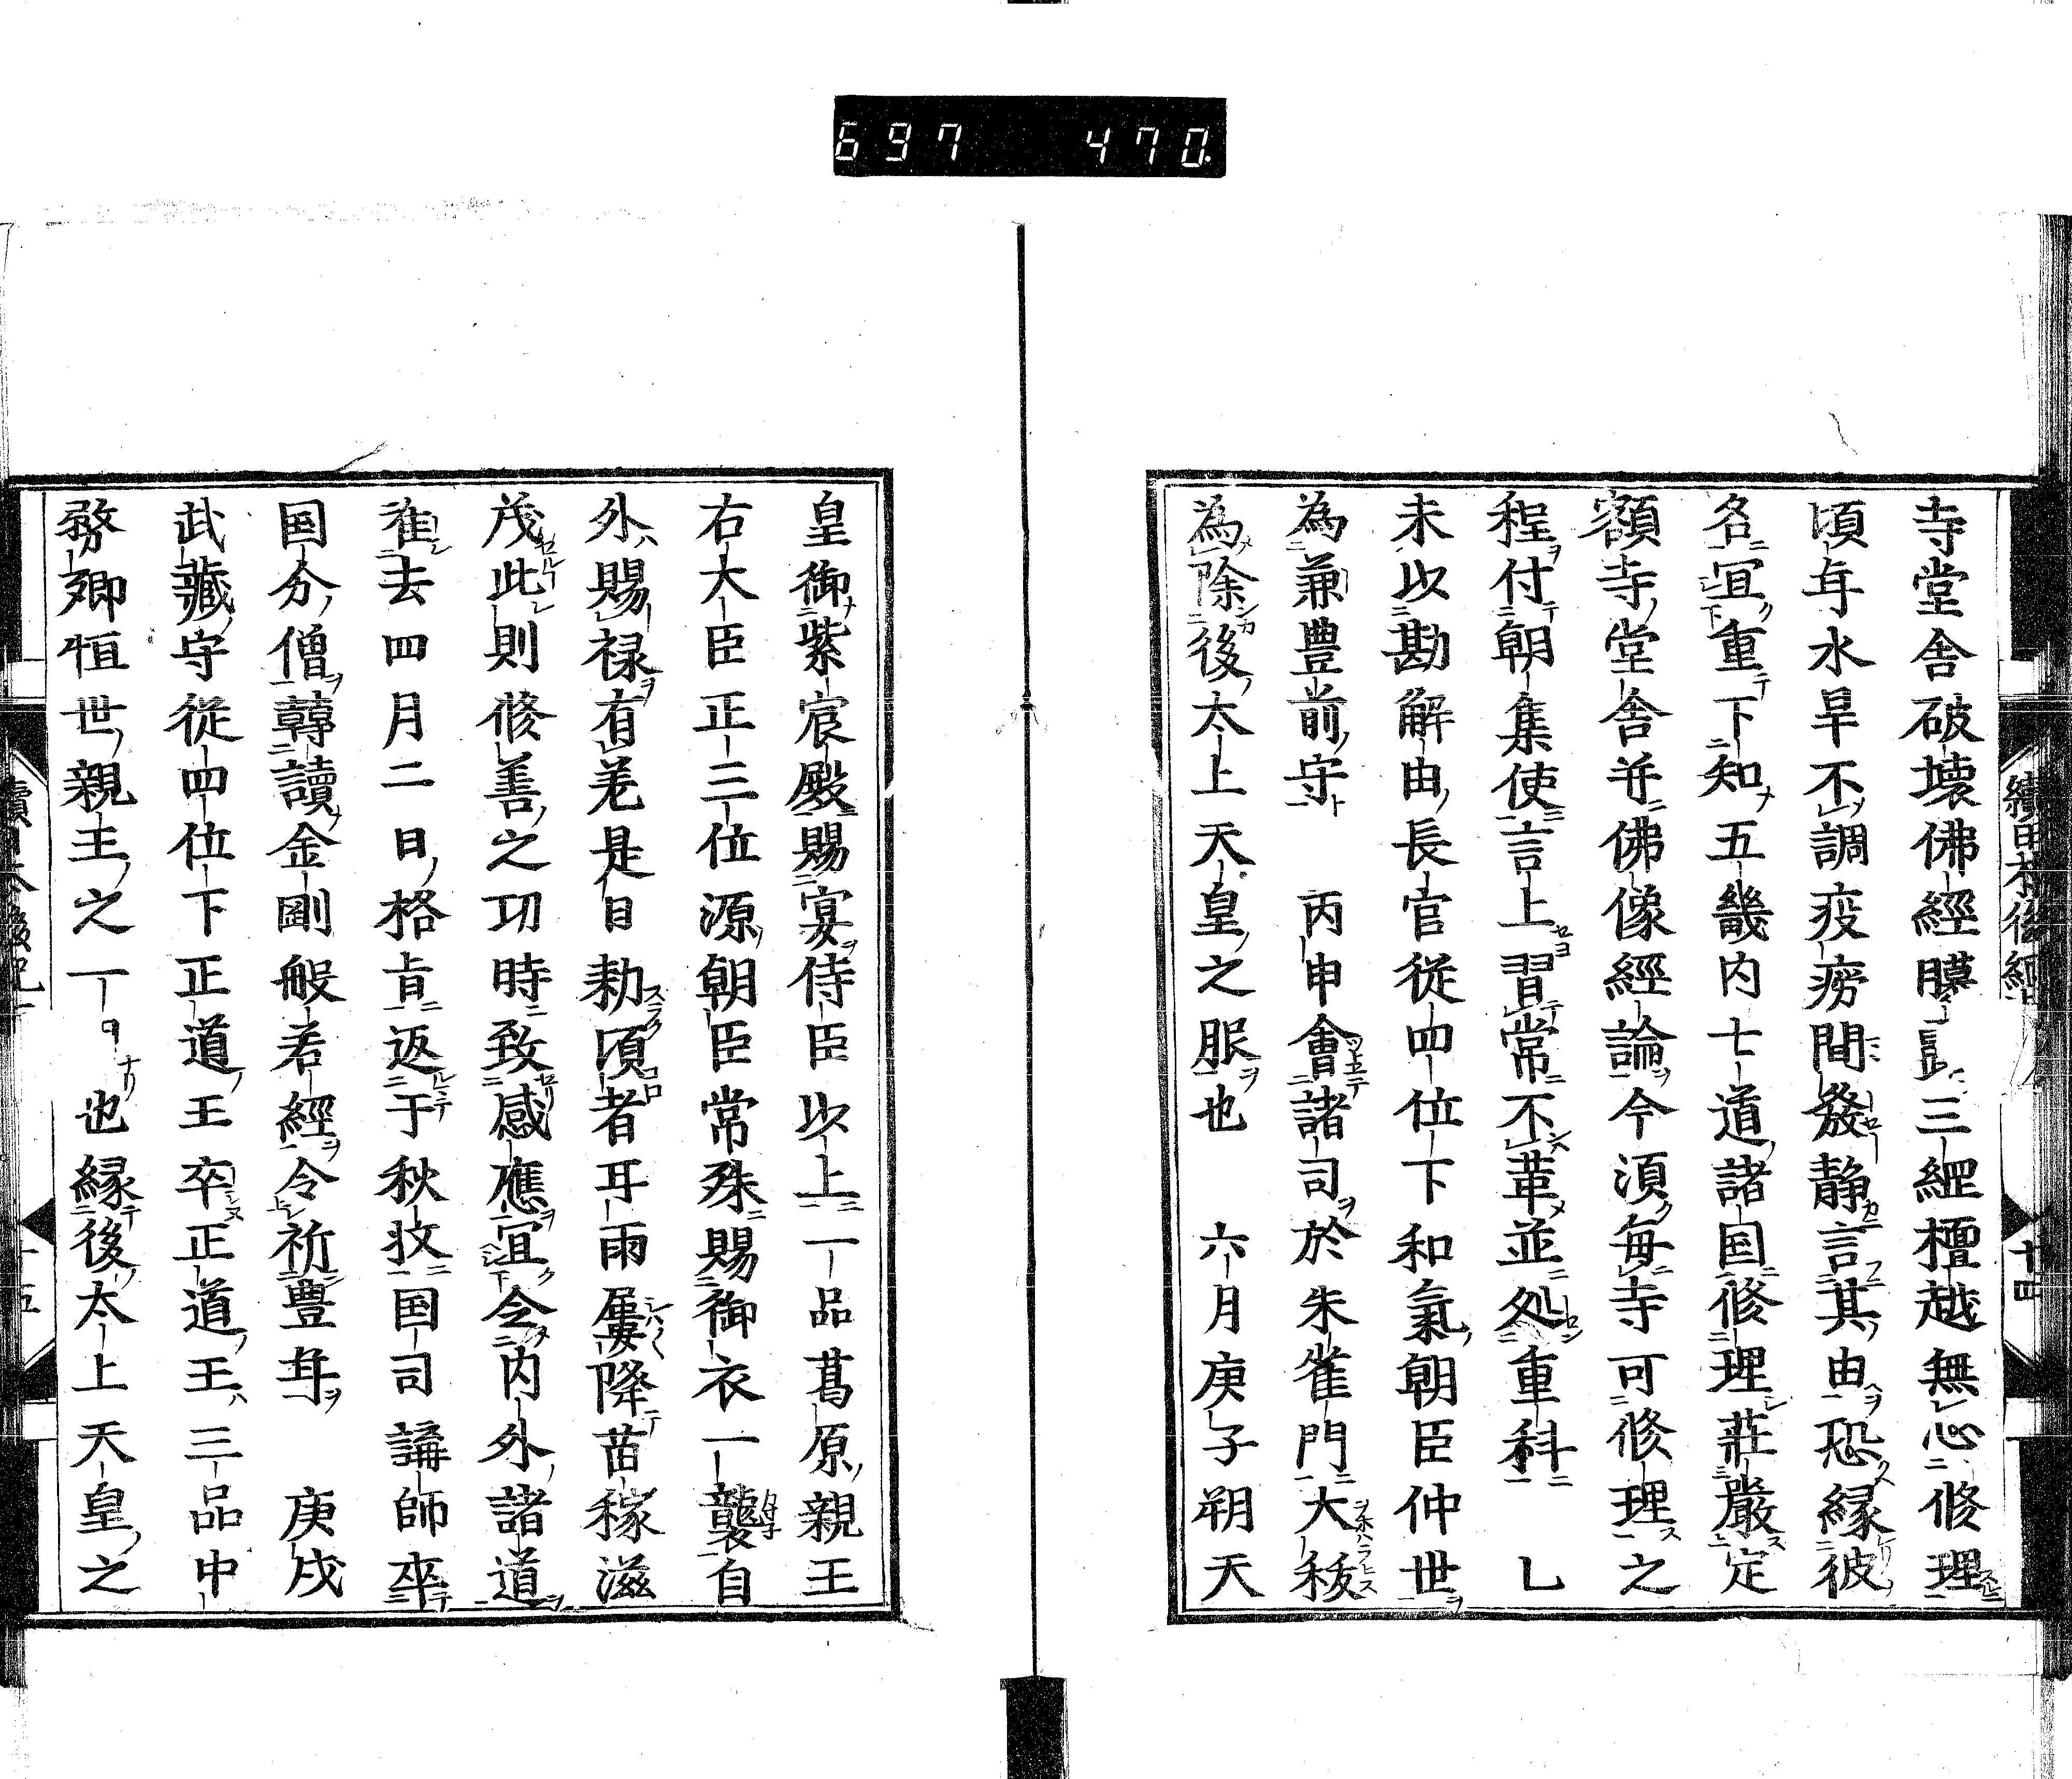 697 470.
寺堂舎破壊佛經曝三綱檀越無心修理
頃年水旱不調疫癘間發静言其由恐縁彼
各宜重下知五畿内七道諸国修理莊嚴定
額寺堂舎并佛像經論今須毎寺可修理之
程付朝集使言上習常不革並処重科 乚
未以勘解由長官従四位下和氣朝臣仲世
為兼豊前守 丙申會諸司於朱雀門大秡
為除後太上天皇之服也 六月庚子朔天
十四
皇御紫宸殿賜宴侍臣以上一品葛原親王
右大臣正三位源朝臣常殊賜御衣一襲自
外賜禄有差是日勅頃者耳雨屢降苗稼滋
茂此則修善之功時致感應宜令内外諸道
准去四月二日格旨返于秋收国司講師率
国分僧轉讀金剛般若經令祈豊年 庚戌
武藏守従四位下正道王卒正道王三品中
務卿恒世親王之一 也縁後太上天皇之